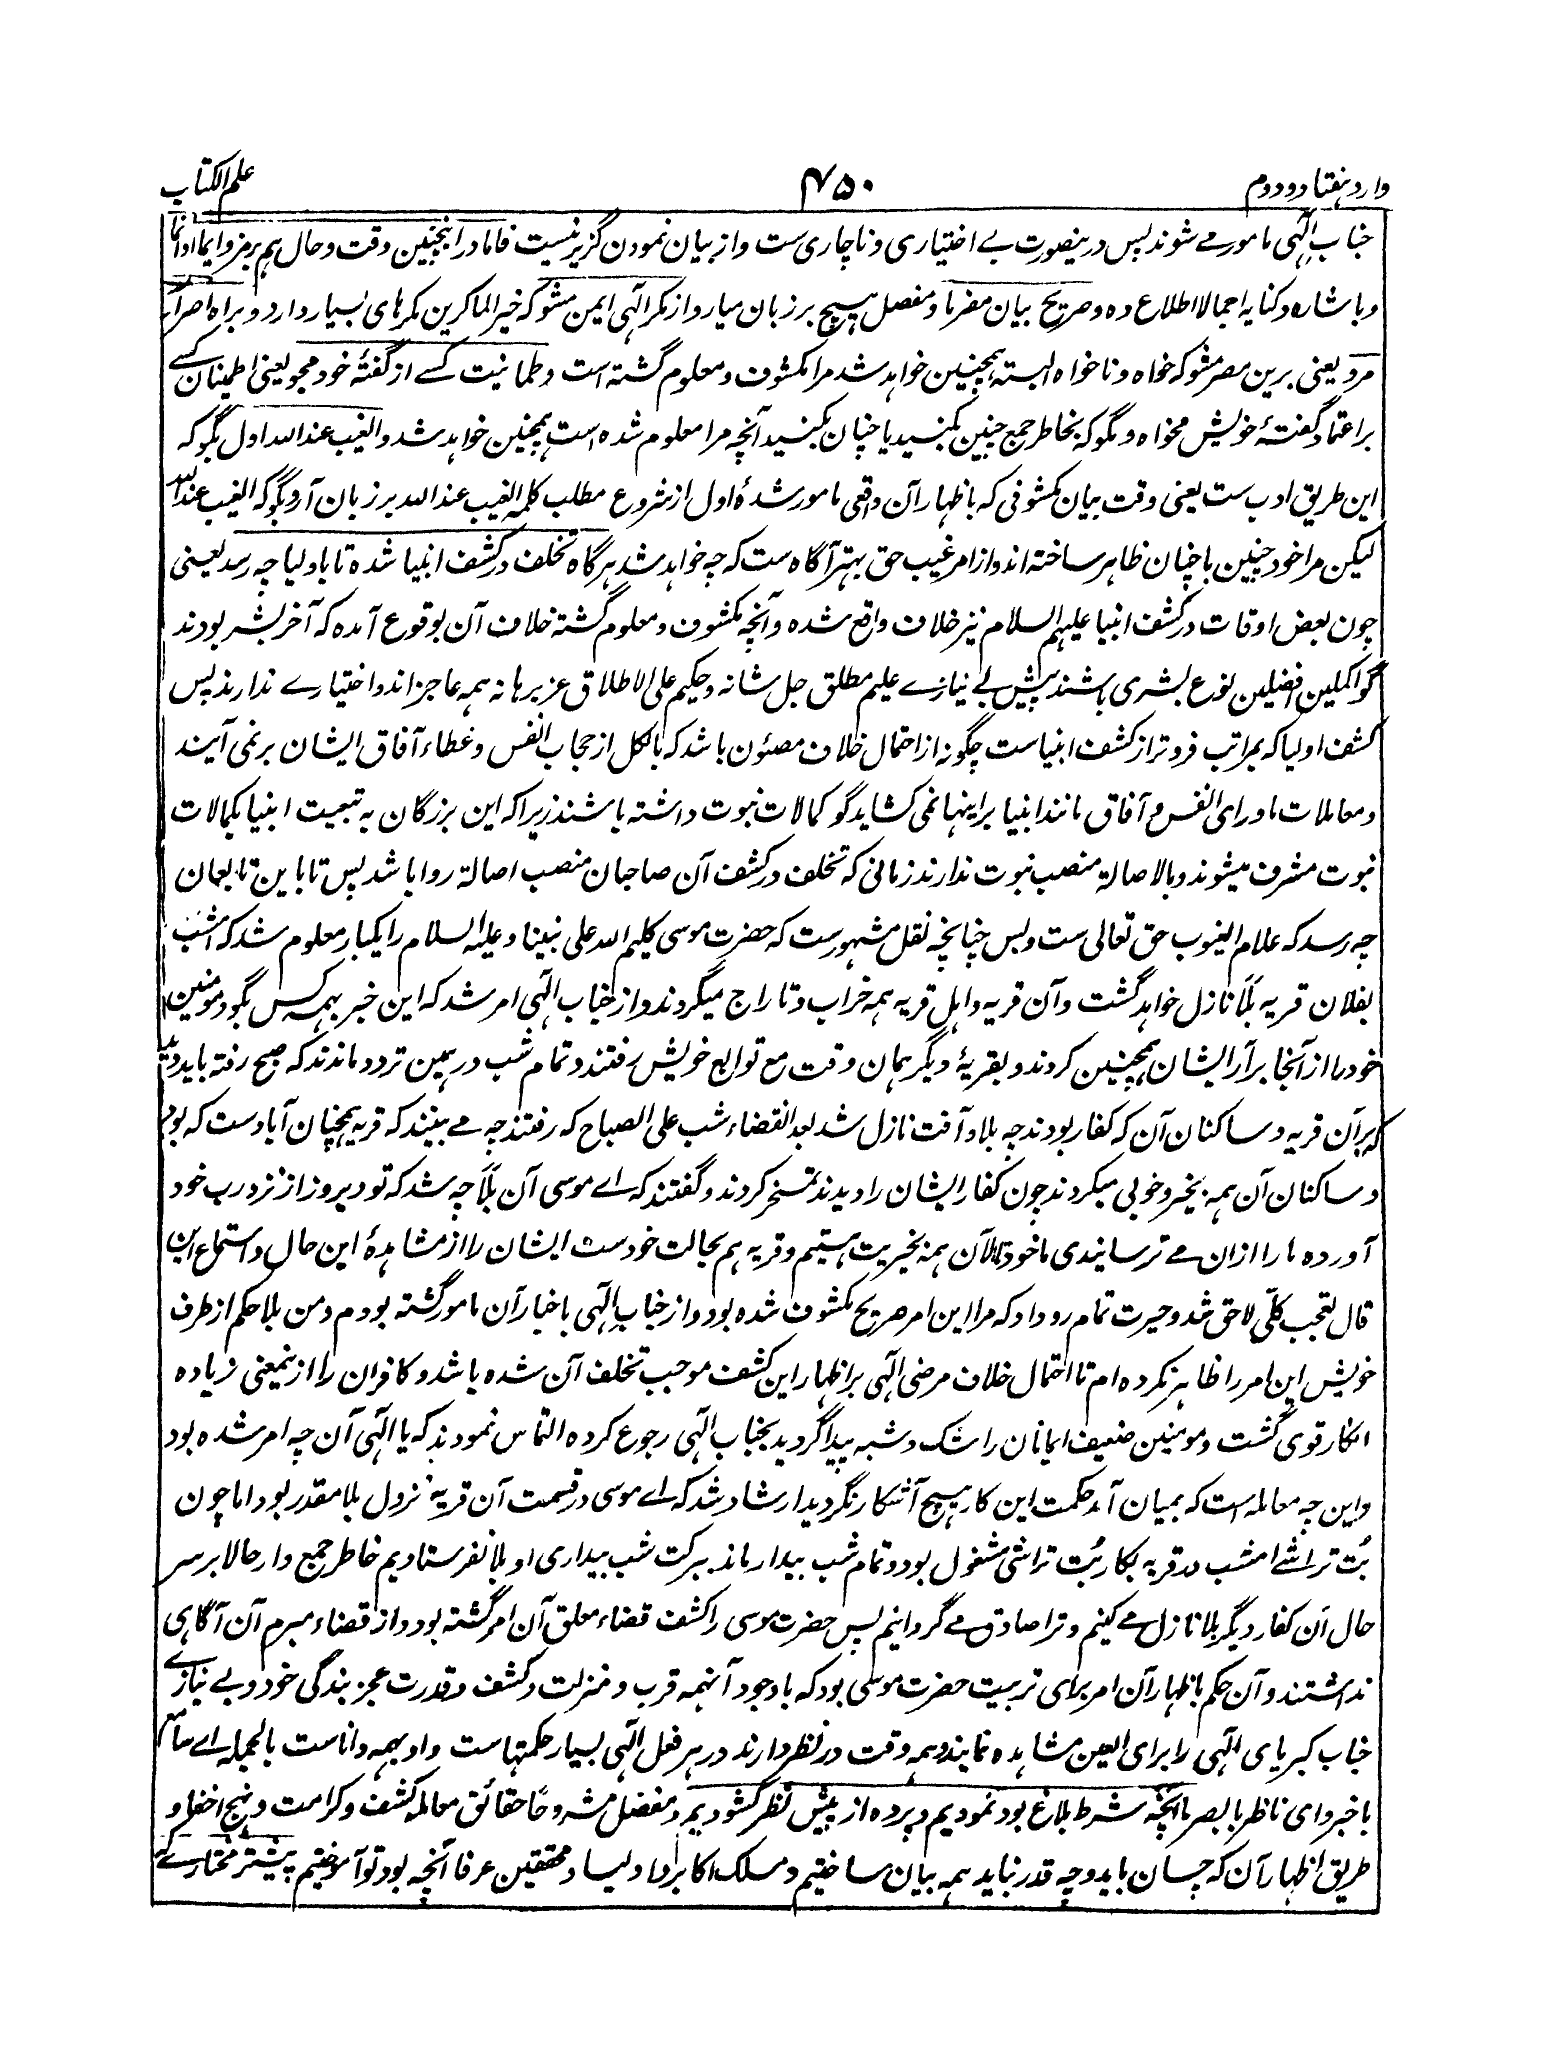 وارد هفتاد و دوم
۴۵۰
علم الکتاب
جناب الٰهی مامور مے شوند پس درینصورت بے اختیاری و ناچاری ست و از بیان نمودن گزیر نیست فاما در اینچنین وقت و حال هم برمز و ایما ادا نما
و باشاره و کنایه اجمالا اطلاع ده و صریح بیان مفرما و مفصل هیچ بر زبان میار و از مکر الٰهی ایمن مشو که خیر الماکرین مکرهای بسیار دارد و براه اصرار
مرو یعنی برین مصر مشو که خواه و ناخواه البته همچنین خواهد شد مرا مکشوف و معلوم گشته است و طمانیت کسے از گفتهٔ خود مجو یعنی اطمینان کسے
بر اعتماد گفتهٔ خویش مخواه و مگو که بخاطر جمع چنین بکنید یا چنان بکنید آنچه مرا معلوم شده است همچنین خواهد شد و الغیب عند الله اول بگو که
این طریق ادب ست یعنی وقت بیان مکشوفی که باظهار آن واقعی مامور شدهٔ اول از شروع مطلب کلمه الغیب عند الله بر زبان آر و بگو که الغیب عند الله
لیکن مرا خود چنین یا چنان ظاهر ساخته اند و از امر غیب حق بهتر آگاه ست که چه خواهد شد هر گاه تخلف در کشف انبیا شده تا باولیا چه رسد یعنی
چون بعض اوقات در کشف انبیا علیهم السلام نیز خلاف واقع شده و آنچه مکشوف و معلوم گشته خلاف آن بوقوع آمده که آخر بشر بودند
گو اکملین افضلین نوع بشری باشند پیش بے نیازے علیم مطلق جل شانه و حکیم علی الاطلاق عز برهانه همه عاجز اند و اختیارے ندارند پس
کشف اولیا که بمراتب فروتر از کشف انبیاست چگونه از احتمال خلاف مصئون باشد که بالکل از حجاب انفس و غطاء آفاق ایشان بر نمی آیند
و معاملات ماورای انفس و آفاق مانند انبیا براینها نمی کشاید گو کمالات نبوت داشته باشند زیرا که این بزرگان به تبعیت انبیا بکمالات
نبوت مشرف میشوند و بالاصالة منصب نبوت ندارند زمانی که تخلف در کشف آن صاحبان منصب اصالة روا باشد پس تا باین تابعان
چه رسد که علام الغیوب حق تعالی ست و بس چنانچه نقل مشهور ست که حضرت موسی کلیم الله علی نبینا و علیه السلام را یکبار معلوم شد که امشب
بفلان قریه بلا نازل خواهد گشت و آن قریه و اهل قریه همه خراب و تاراج میگردند و از جناب الٰهی امر شد که این خبر بهمه کس بگو و مومنین
خود را از آنجا برآر ایشان همچنین کردند و بقریهٔ دیگر همان وقت مع توابع خویش رفتند و تمام شب در همین تردد ماندند که صبح رفته باید دید
که بر آن قریه و ساکنان آن که کفار بودند چه بلا و آفت نازل شد بعد انقضاء شب علی الصباح که رفتند چه مے بینند که قریه همچنان آباد ست که بود
و ساکنان آن همه بخیر و خوبی میگردند چون کفار ایشان را دیدند تمسخر کردند و گفتند که اے موسی آن بلا چه شد که تو دیروز از نزد رب خود
آورده ما را ازان مے ترسانیدی ما خود تا الآن همه بخیریت هستیم و قریه هم بحالت خودست ایشان را از مشاهدهٔ این حال و استماع این
قال تعجب کلّی لاحق شد و حیرت تمام رو داد که مرا این امر صریح مکشوف شده بود و از جناب الٰهی باخبار آن مامور گشته بودم و من بلا حکم از طرف
خویش این امر را ظاهر نکرده ام تا احتمال خلاف مرضی الٰهی بر اظهار این کشف موجب تخلف آن شده باشد و کافران را ازینمعنی زیاده
انکار قوی گشت و مومنین ضعیف ایمانان را شک و شبه پیدا گردید بجناب الٰهی رجوع کرده التماس نمودند که یا الٰهی آن چه امر شده بود
و این چه معامله است که بمیان آمد حکمت این کار هیچ آشکار نگردید ارشاد شد که اے موسی در قسمت آن قریه نزول بلا مقدر بود اما چون
بُت تراشے امشب در قریه بکار بُت تراشی مشغول بود و تمام شب بیدار ماند ببرکت شب بیداری او بلا نفرستادیم خاطر جمع دار حالا بر سر
حال آن کفار دیگر بلا نازل مے کنیم و ترا صادق مے گردانیم پس حضرت موسی را کشف قضاء معلق آن امر گشته بود و از قضاء مبرم آن آگاهی
نداشتند و آن حکم باظهار آن امر برای تربیت حضرت موسی بود که باوجود آنهمه قرب و منزلت و کشف و قدرت عجز بندگی خود و بے نیازے
جناب کبریای الٰهی را برای العین مشاهده نمایند و همه وقت در نظر دارند در هر فعل الٰهی بسیار حکمتهاست و او بهمه داناست بالجمله اے سامع
باخبر و ای ناظر بابصر ما آنچه شرط بلاغ بود نمودیم و پرده از پیش نظر گشودیم و مفصل مشروحًا حقائق معامله کشف و کرامت و نهج اخفا و
طریق اظهار آن که چسان باید و چه قدر نباید همه بیان ساختیم و مسلک اکابر اولیا و محققین عرفا آنچه بود بتو آموختیم پیشتر مختارے که